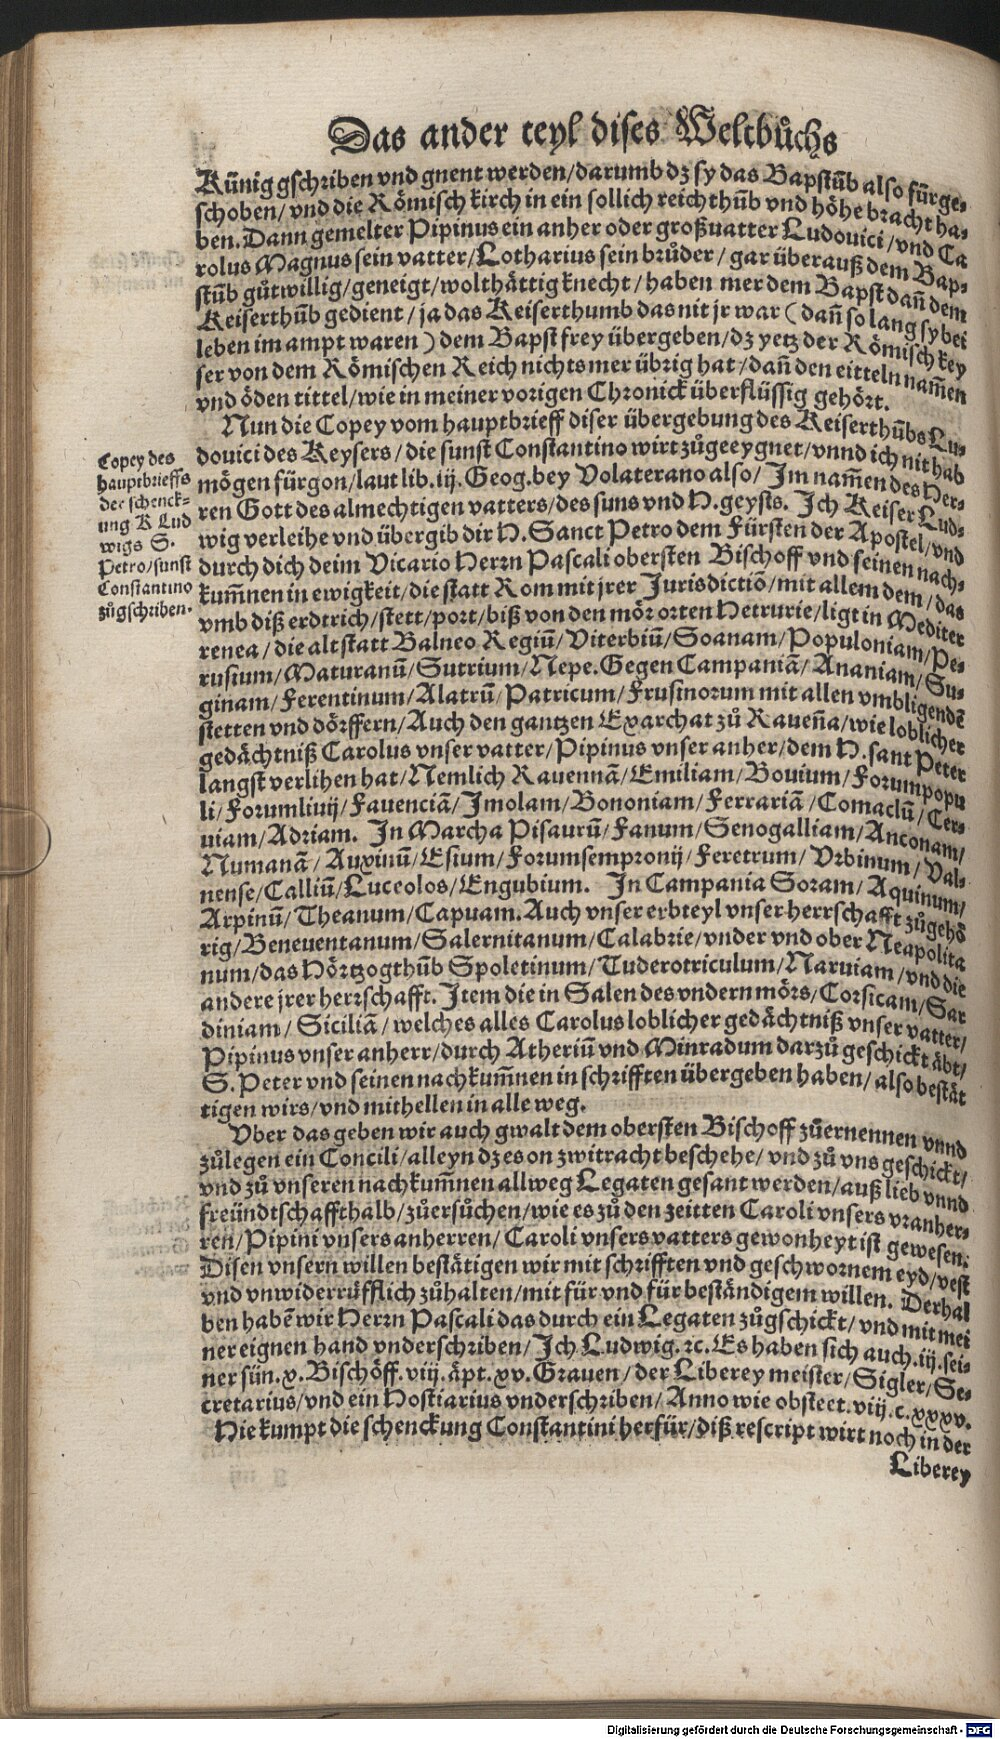 Das ander teyl dises Weltbůchs
Künig gschriben vnd gnent werden/darumb dz sy das Bapstūb also fürge-
schoben/vnd die Römisch kirch in ein sollich reichthūb vnd höhe bracht ha-
ben. Dann gemelter Pipinus ein anher oder großuatter Ludouici/vnd Ca
rolus Magnus sein vatter/Lotharius sein brůder/gar überauß dem Bap-
stūb gůtwillig/geneigt/wolthättig knecht/haben mer dem Bapst dañ dem
Keiserthūb gedient/ja das Keiserthumb das nit jr war (dañ so lang sy bei
leben im ampt waren) dem Bapst frey übergeben/dz yetz der Römisch key
ser von dem Römischen Reich nichts mer übrig hat/dañ den eitteln nam̄en
vnd öden tittel/wie in meiner vorigen Chronick überflüssig gehört.
Nun die Copey vom hauptbrieff diser übergebung des Keiserthūbs Lu-
douici des Keysers/die sunst Constantino wirt zůgeeygnet/vnnd ich nit hab
mögen fürgon/laut lib.iij. Geog. bey Volaterano also/Im nam̄en des Her-
ren Gott des almechtigen vatters/des suns vnd H. geysts. Ich Keiser Lud-
wig verleihe vnd übergib dir H. Sanct Petro dem Fürsten der Apostel/vnd
durch dich deim Vicario Herrn Pascali obersten Bischoff vnd seinen nach-
kum̄nen in ewigkeit/die statt Rom mit jrer Jurisdictiō/mit allem dem/das
vmb diß erdtrich/stett/port/biß von den mör orten Hetrurie/ligt in Mediter
renea/die alt statt Balneo Regiū/Viterbiū/Soanam/Populoniam/Pe-
rusium/Maturanū/Sutrium/Nepe. Gegen Campaniā/Ananiam/Su-
ginam/Ferentinum/Alatrū/Patricum/Frusinorum mit allen vmbligendē
stetten vnd dörffern/Auch den gantzen Exarchat zů Raueña/wie loblicher
gedächtniß Carolus vnser vatter/Pipinus vnser anher/dem H. sant Peter
langst verlihen hat/Nemlich Rauennā/Emiliam/Bouium/Forumpopu
li/Forumliuij/Fauenciā/Imolam/Bononiam/Ferrariā/Comaclū/Cer-
uiam/Adriam. In Marcha Pisaurū/Fanum/Senogalliam/Anconam/
Numanā/Auxinū/Esium/Forumsempronij/Feretrum/Vrbinum/Val-
nense/Calliū/Luceolos/Engubium. In Campania Soram/Aquinum/
Arpinū/Theanum/Capuam. Auch vnser erbteyl vnser herrschafft zůgehö
rig/Beneuentanum/Salernitanum/Calabrie/vnder vnd ober Neapolita
num/das Hörtzogthūb Spoletinum/Tuderotriculum/Naruiam/vnd die
andere jrer herrschafft. Item die in Salen des vndern mörs/Corsicam/Sar
diniam/Siciliā/welches alles Carolus loblicher gedächtniß vnser vatter/
Pipinus vnser anherr/durch Atheriū vnd Minradum darzů geschickt äbt/
S. Peter vnd seinen nachkum̄nen in schrifften übergeben haben/also bestät
tigen wirs/vnd mithellen in alle weg.
Vber das geben wir auch gwalt dem obersten Bischoff zůernennen vnnd
zůlegen ein Concili/alleyn dz es on zwitracht beschehe/vnd zů vns geschickt/
vnd zů vnseren nachkum̄nen allweg Legaten gesant werden/auß lieb vnnd
freündtschaffthalb/zůersůchen/wie es zů den zeitten Caroli vnsers vranher-
ren/Pipini vnsers anherren/Caroli vnsers vatters gewonheyt ist gewesen:
Disen vnsern willen bestätigen wir mit schrifften vnd geschwornem eyd/vest
vnd vnwiderrůfflich zůhalten/mit für vnd für beständigem willen. Derhal
ben habē wir Herrn Pascali das durch ein Legaten zůgschickt/vnd mit mei
ner eignen hand vnderschriben/Ich Ludwig.ꝛc. Es haben sich auch.iij.sei-
ner sün.x.Bischöff.viij.äpt.xv.Grauen/der Liberey meister/Sigler/Se-
cretarius/vnd ein Hostiarius vnderschriben/Anno wie obstect.viij.c.xxxv.
Hie kumpt die schenckung Constantini herfür/diß rescript wirt noch in der
Liberey
Copey des
hauptbrieffs
der schenck-
ung K Lud
wigs S.
Petro/sunst
Constantino
zůgschriben.
Digitalisierung gefördert durch die Deutsche Forschungsgemeinschaft - DFG